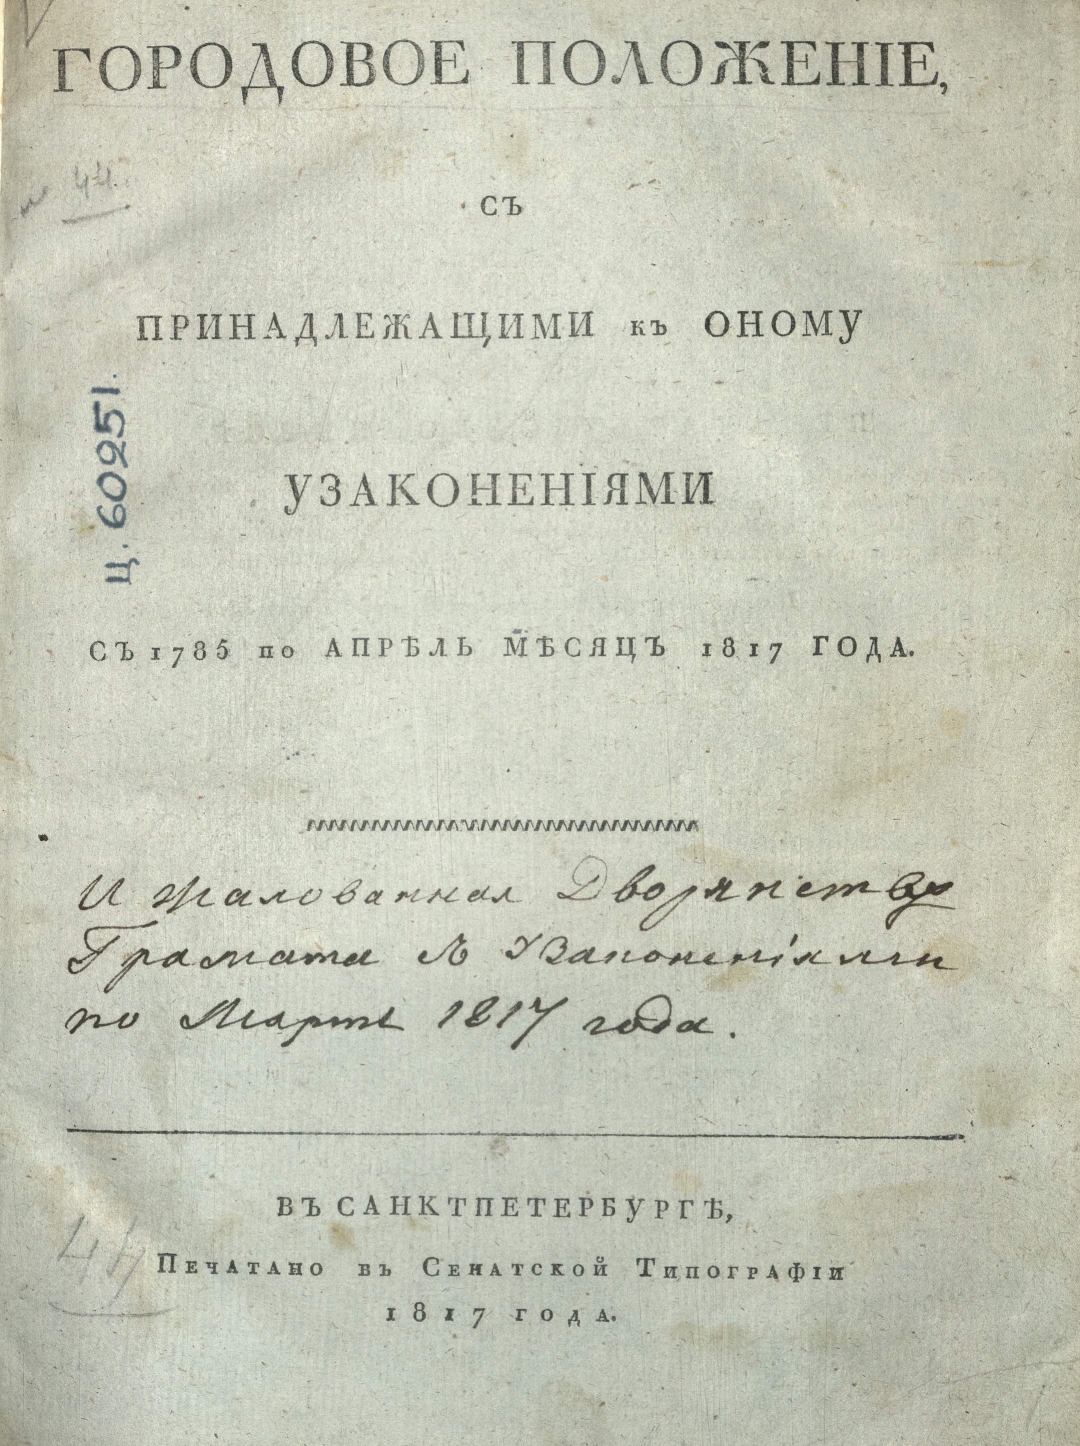 ГОРОДОВОЕ ПОЛОЖЕНІЕ,
№ 44.
СЪ
ПРИНАДЛЕЖАЩИМИ къ ОНОМУ
Ц. 60251.
УЗАКОНЕНІЯМИ
СЪ 1785 по АПРѢЛЬ МѢСЯЦЪ 1817 ГОДА.
И жалованная Дворянству
Грамата съ Узаконеніями
по Мартъ 1817 года.
ВЪ САНКТПЕТЕРБУРГѢ,
Печатано въ Сенатской Типографіи
1817 года.
44